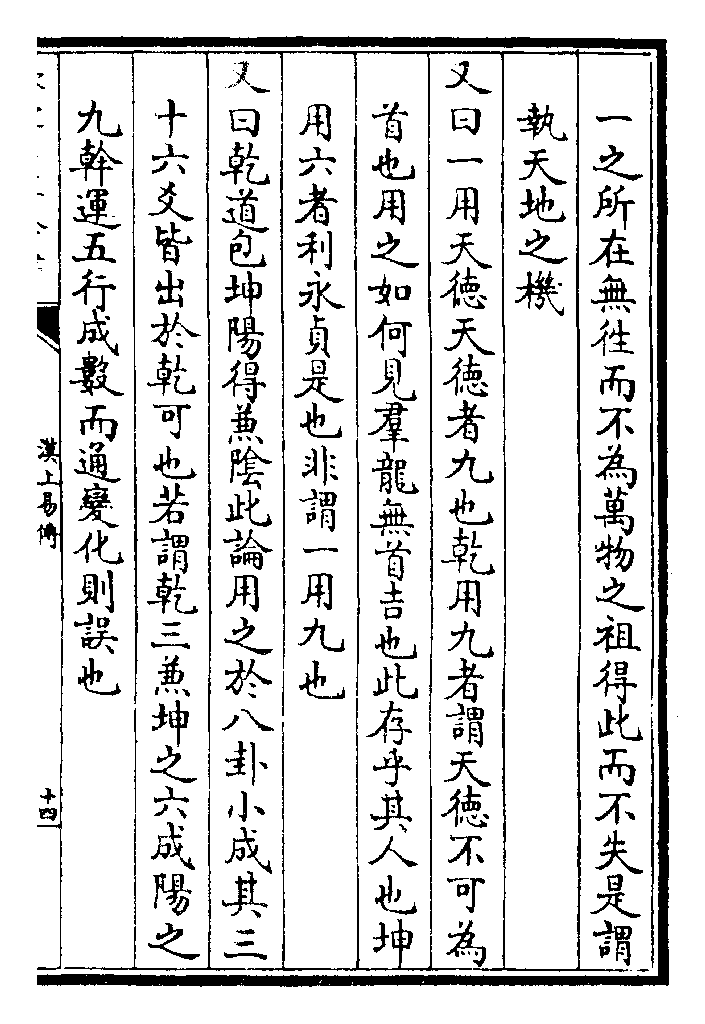 一之所在無徃而不為萬物之祖得此而不失是謂
執天地之機
又曰一用天徳天徳者九也乾用九者謂天徳不可為
首也用之如何見羣龍無首吉也此存乎其人也坤
用六者利永貞是也非謂一用九也
又曰乾道包坤陽得兼陰此論用之於八卦小成其三
十六爻皆出於乾可也若謂乾三兼坤之六成陽之
九幹運五行成數而通變化則誤也
漢上易傳
十四